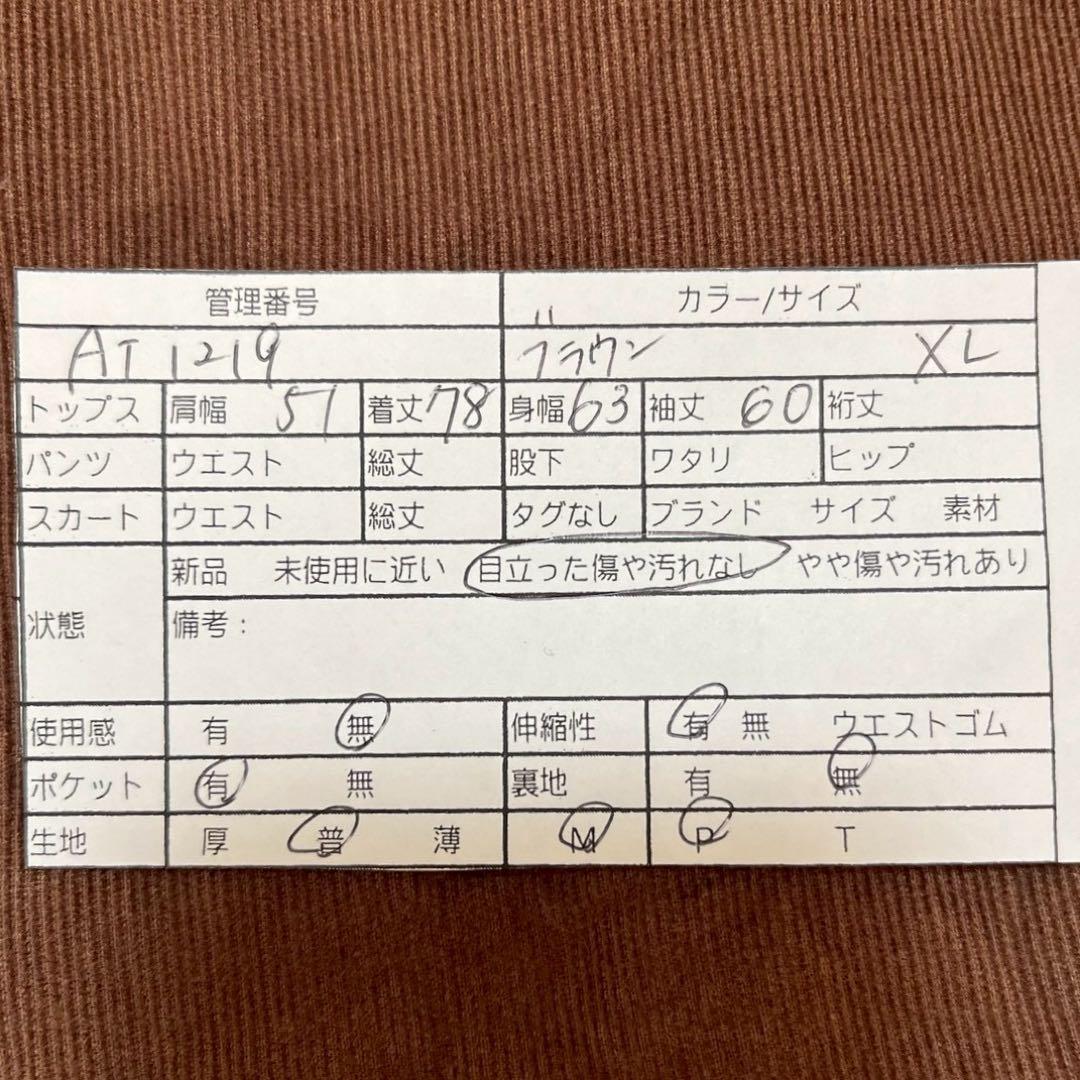 管理番号 カラー/サイズ
AT 1219 ブラウン XL
トップス 肩幅 51 着丈 78 身幅 63 袖丈 60 裄丈
パンツ ウエスト 総丈 股下 ワタリ ヒップ
スカート ウエスト 総丈 タグなし ブランド サイズ 素材
新品 未使用に近い 目立った傷や汚れなし やや傷や汚れあり
状態 備考：
使用感 有 無 伸縮性 有 無 ウエストゴム
ポケット 有 無 裏地 有 無
生地 厚 普 薄 M P T